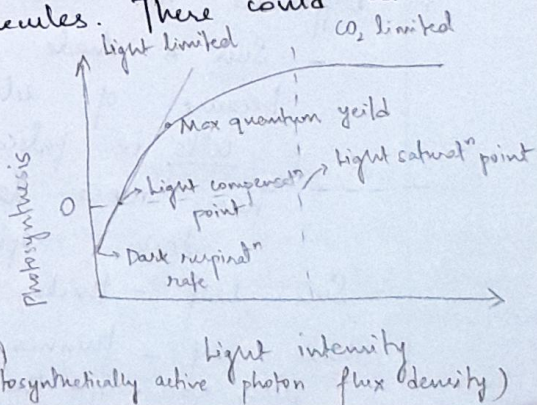 ecules. There could
Light limited
CO₂ limited
Max quantum yeild
Light saturatⁿ point
Light compensatⁿ
point
0
Photosynthesis
Dark respiratⁿ
rate
Light intensity
tosynthetically active photon flux density)